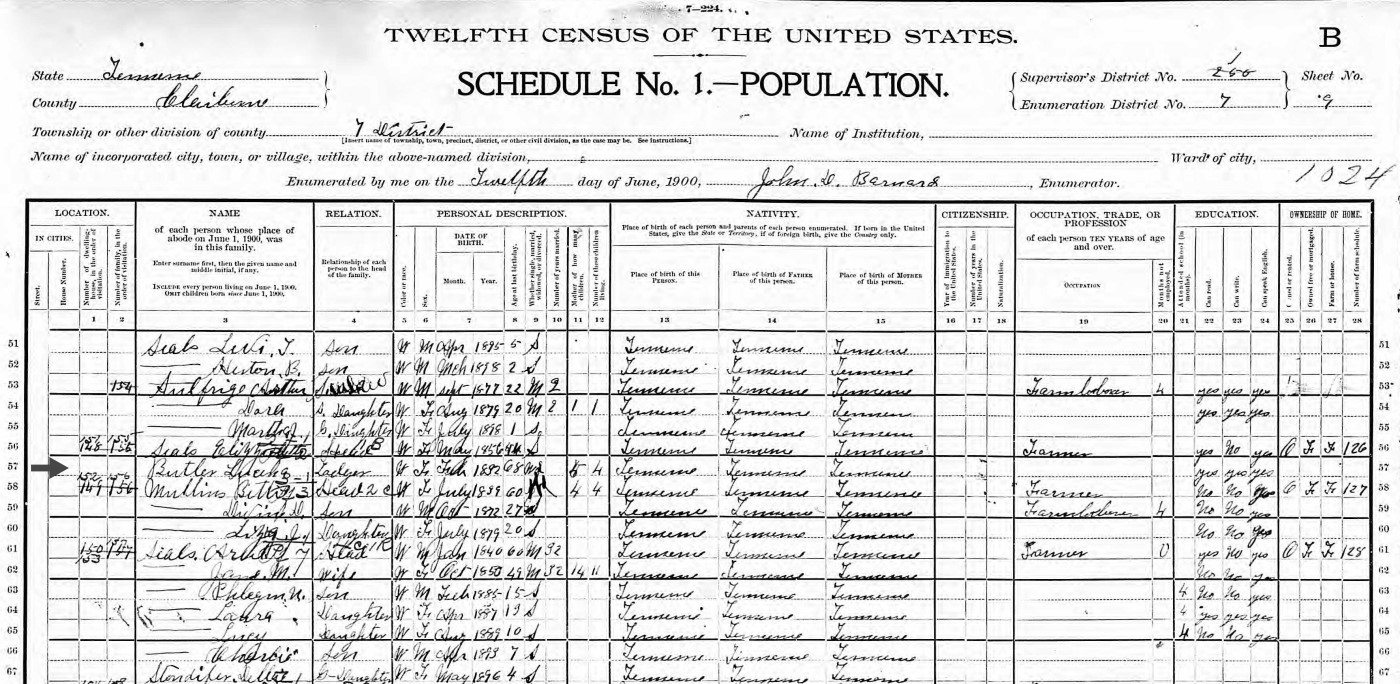 7-224.
TWELFTH CENSUS OF THE UNITED STATES.
B
State Tennessee
County Claiborne
SCHEDULE No. 1.—POPULATION.
Supervisor's District No.
Enumeration District No. 7
Sheet No.
9
Township or other division of county 7 District
[Insert name of township, town, precinct, district, or other civil division, as the case may be. See instructions.]
Name of Institution,
Name of incorporated city, town, or village, within the above-named division,
Ward of city,
Enumerated by me on the Twelfth day of June, 1900, John D. Barnard, Enumerator.
1024
LOCATION. NAME RELATION. PERSONAL DESCRIPTION. NATIVITY. CITIZENSHIP. OCCUPATION, TRADE, OR PROFESSION EDUCATION. OWNERSHIP OF HOME.
IN CITIES. Street. House Number. Number of dwelling-house, in the order of visitation. Number of family, in the order of visitation.
of each person whose place of abode on June 1, 1900, was in this family.
Enter surname first, then the given name and middle initial, if any.
INCLUDE every person living on June 1, 1900. OMIT children born since June 1, 1900.
Relationship of each person to the head of the family.
Color or race. Sex. DATE OF BIRTH. Month. Year. Age at last birthday. Whether single, married, widowed, or divorced. Number of years married. Mother of how many children. Number of these children living.
Place of birth of each person and parents of each person enumerated. If born in the United States, give the State or Territory; if of foreign birth, give the Country only.
Place of birth of this PERSON. Place of birth of FATHER of this person. Place of birth of MOTHER of this person.
Year of immigration to the United States. Number of years in the United States. Naturalization.
of each person TEN YEARS of age and over.
OCCUPATION Months not employed.
Attended school (in months). Can read. Can write. Can speak English.
Owned or rented. Owned free or mortgaged. Farm or house. Number of farm schedule.
1 2 3 4 5 6 7 8 9 10 11 12 13 14 15 16 17 18 19 20 21 22 23 24 25 26 27 28
51 Seals Son W M Apr 1895 5 S Tennessee Tennessee Tennessee 51
52 B. Son W M Mch 1898 2 S Tennessee Tennessee Tennessee 52
53 154 W M Sept 1877 22 M 2 Tennessee Tennessee Tennessee Farm laborer 4 yes yes yes 53
54 Dora Daughter W F Aug 1879 20 M 2 1 1 Tennessee Tennessee Tennessee yes yes yes 54
55 G. Daughter W F July 1898 1 S Tennessee Tennessee Tennessee 55
56 Seals W F May 1856 44 Tennessee Tennessee Tennessee Farmer yes No yes O F F 126 56
57 Butler Lodger W F Feb 1832 68 5 4 Tennessee Tennessee Tennessee yes yes yes 57
58 Mullins Head W F July 1839 60 4 4 Tennessee Tennessee Tennessee Farmer No No yes O F F 127 58
59 Son W M Oct 1872 27 S Tennessee Tennessee Tennessee Farm laborer 4 No No yes 59
60 Daughter W F July 1879 20 S Tennessee Tennessee Tennessee No No yes 60
61 Seals Head W M Jan 1840 60 M 32 Tennessee Tennessee Tennessee Farmer 0 yes No yes O F F 128 61
62 Jane M. Wife W F Oct 1850 49 M 32 14 11 Tennessee Tennessee Tennessee No No yes 62
63 Son W M Feb 1885 15 S Tennessee Tennessee Tennessee 4 No No yes 63
64 Laura Daughter W F Apr 1887 13 S Tennessee Tennessee Tennessee 4 yes yes yes 64
65 Lucy Daughter W F Aug 1889 10 S Tennessee Tennessee Tennessee 4 No No yes 65
66 Charlie Son W M Apr 1893 7 S Tennessee Tennessee Tennessee 66
67 Standifer G-Daughter W F May 1896 4 S Tennessee Tennessee Tennessee 67